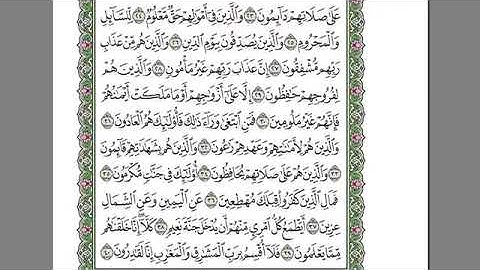 عَلَىٰ صَلَاتِهِمْ دَآئِمُونَ ﴿٢٣﴾ وَالَّذِينَ فِىٓ أَمْوَٰلِهِمْ حَقٌّ مَّعْلُومٌ ﴿٢٤﴾ لِّلسَّآئِلِ
وَالْمَحْرُومِ ﴿٢٥﴾ وَالَّذِينَ يُصَدِّقُونَ بِيَوْمِ الدِّينِ ﴿٢٦﴾ وَالَّذِينَ هُم مِّنْ عَذَابِ
رَبِّهِم مُّشْفِقُونَ ﴿٢٧﴾ إِنَّ عَذَابَ رَبِّهِمْ غَيْرُ مَأْمُونٍ ﴿٢٨﴾ وَالَّذِينَ هُمْ
لِفُرُوجِهِمْ حَٰفِظُونَ ﴿٢٩﴾ إِلَّا عَلَىٰٓ أَزْوَٰجِهِمْ أَوْ مَا مَلَكَتْ أَيْمَٰنُهُمْ
فَإِنَّهُمْ غَيْرُ مَلُومِينَ ﴿٣٠﴾ فَمَنِ ابْتَغَىٰ وَرَآءَ ذَٰلِكَ فَأُو۟لَٰٓئِكَ هُمُ الْعَادُونَ ﴿٣١﴾
وَالَّذِينَ هُمْ لِأَمَٰنَٰتِهِمْ وَعَهْدِهِمْ رَٰعُونَ ﴿٣٢﴾ وَالَّذِينَ هُم بِشَهَٰدَٰتِهِمْ قَآئِمُونَ
﴿٣٣﴾ وَالَّذِينَ هُمْ عَلَىٰ صَلَاتِهِمْ يُحَافِظُونَ ﴿٣٤﴾ أُو۟لَٰٓئِكَ فِى جَنَّٰتٍ مُّكْرَمُونَ ﴿٣٥﴾
فَمَالِ الَّذِينَ كَفَرُوا۟ قِبَلَكَ مُهْطِعِينَ ﴿٣٦﴾ عَنِ الْيَمِينِ وَعَنِ الشِّمَالِ
عِزِينَ ﴿٣٧﴾ أَيَطْمَعُ كُلُّ امْرِئٍ مِّنْهُمْ أَن يُدْخَلَ جَنَّةَ نَعِيمٍ ﴿٣٨﴾ كَلَّآ إِنَّا خَلَقْنَٰهُم
مِّمَّا يَعْلَمُونَ ﴿٣٩﴾ فَلَآ أُقْسِمُ بِرَبِّ الْمَشَٰرِقِ وَالْمَغَٰرِبِ إِنَّا لَقَٰدِرُونَ ﴿٤٠﴾